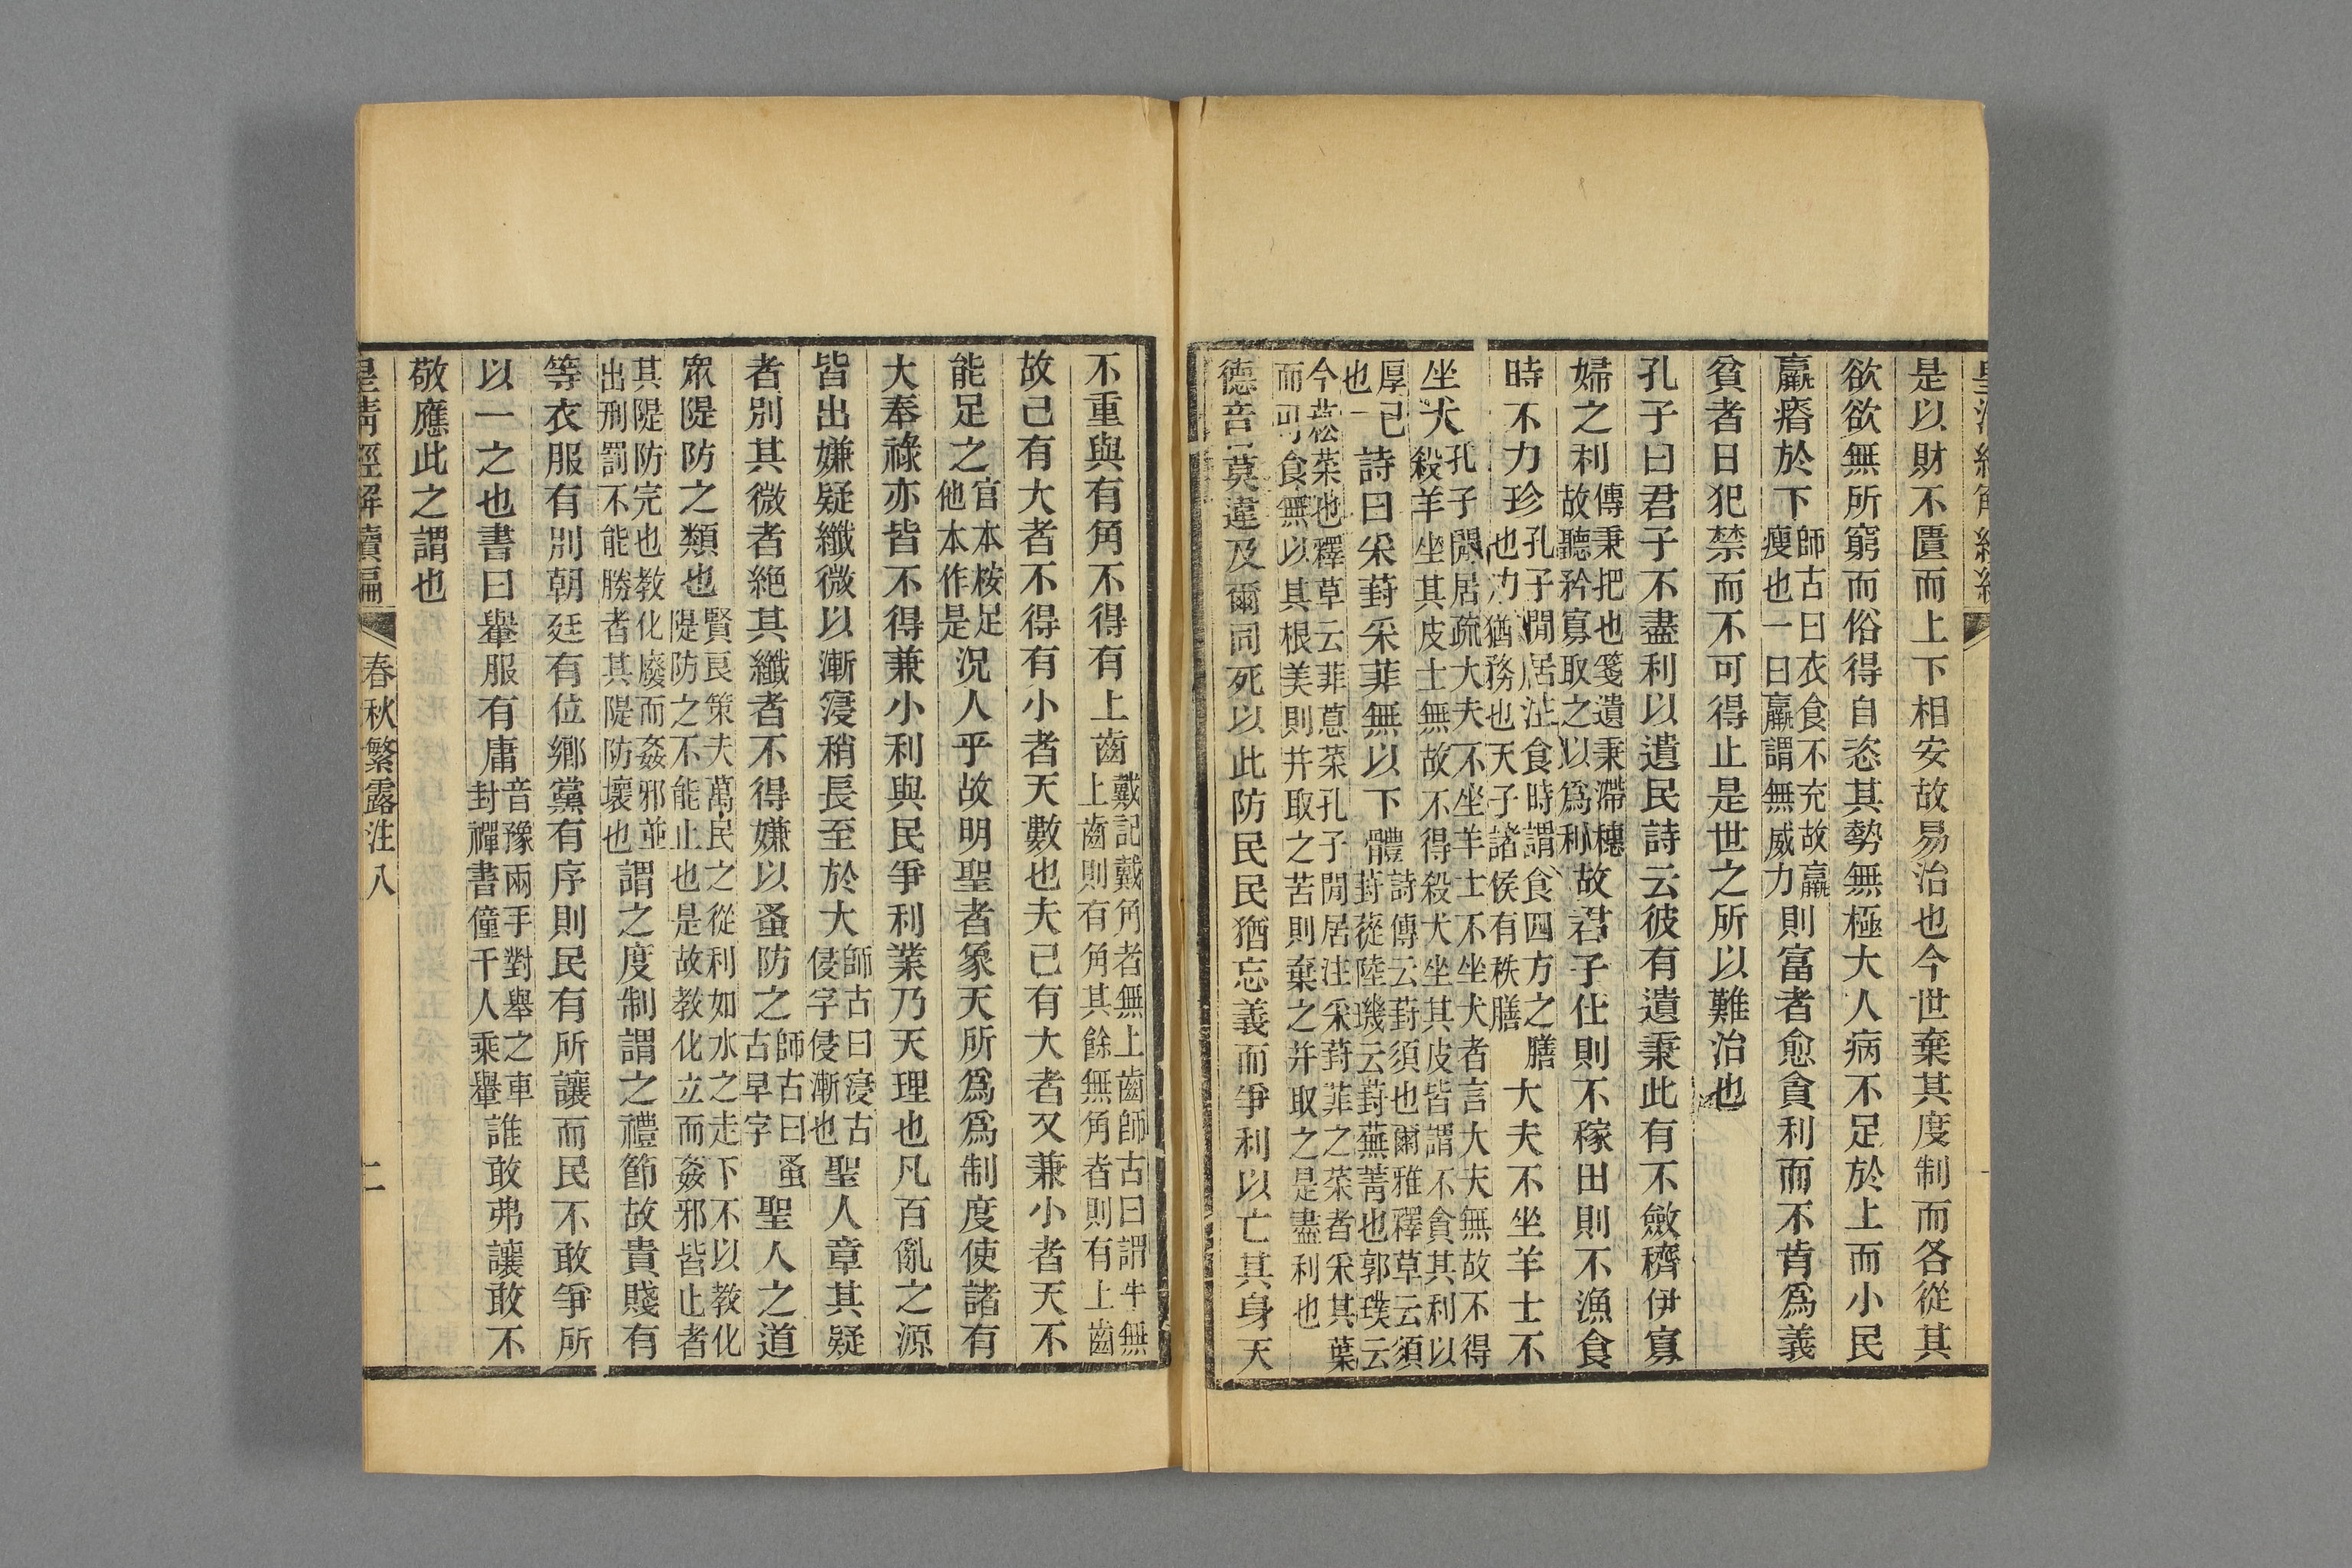 是以財不匱而上下相安故易治也今世棄其度制而各從其
欲欲無所窮而俗得自恣其勢無極大人病不足於上而小民
羸瘠於下師古曰衣食不充故羸瘦也一曰羸謂無威力則富者愈貪利而不肯爲義
貧者日犯禁而不可得止是世之所以難治也
孔子曰君子不盡利以遺民詩云彼有遺秉此有不斂穧伊寡
婦之利傳秉把也箋遺秉滯穗故聽矜寡取之以爲利故君子仕則不稼田則不漁食
時不力珍孔子閒居注食時謂食四方之膳也力猶務也天子諸侯有秩膳大夫不坐羊士不
坐犬孔子閒居疏大夫不坐羊士不坐犬者言大夫無故不得殺羊坐其皮士無故不得殺犬坐其皮皆謂不貪其利以
厚己也詩曰采葑采菲無以下體詩傳云葑須也爾雅釋草云須葑蓯陸璣云葑蕪菁也郭璞云
今菘菜也釋草云菲蒠菜孔子閒居注采葑菲之菜者采其葉而可食無以其根美則并取之苦則棄之并取之是盡利也
德音莫違及爾同死以此防民民猶忘義而爭利以亡其身天
不重與有角不得有上齒戴記戴角者無上齒師古曰謂牛無上齒則有角其餘無角者則有上齒
故已有大者不得有小者天數也夫已有大者又兼小者天不
能足之官本桉足他本作是況人乎故明聖者象天所爲爲制度使諸有
大奉祿亦皆不得兼小利與民爭利業乃天理也凡百亂之源
皆出嫌疑纖微以漸寖稍長至於大師古曰寖古侵字侵漸也聖人章其疑
者別其微者絕其纖者不得嫌以蚤防之師古曰蚤古早字聖人之道
眾隄防之類也賢良策夫萬民之從利如水之走下不以教化隄防之不能止也是故教化立而姦邪皆止者
其隄防完也教化廢而姦邪並出刑罰不能勝者其隄防壞也謂之度制謂之禮節故貴賤有
等衣服有別朝廷有位鄉黨有序則民有所讓而民不敢爭所
以一之也書曰轝服有庸音豫兩手對舉之車封禪書僮千人乘轝誰敢弗讓敢不
敬應此之謂也
皇清經解續編 春秋繁露注八 二